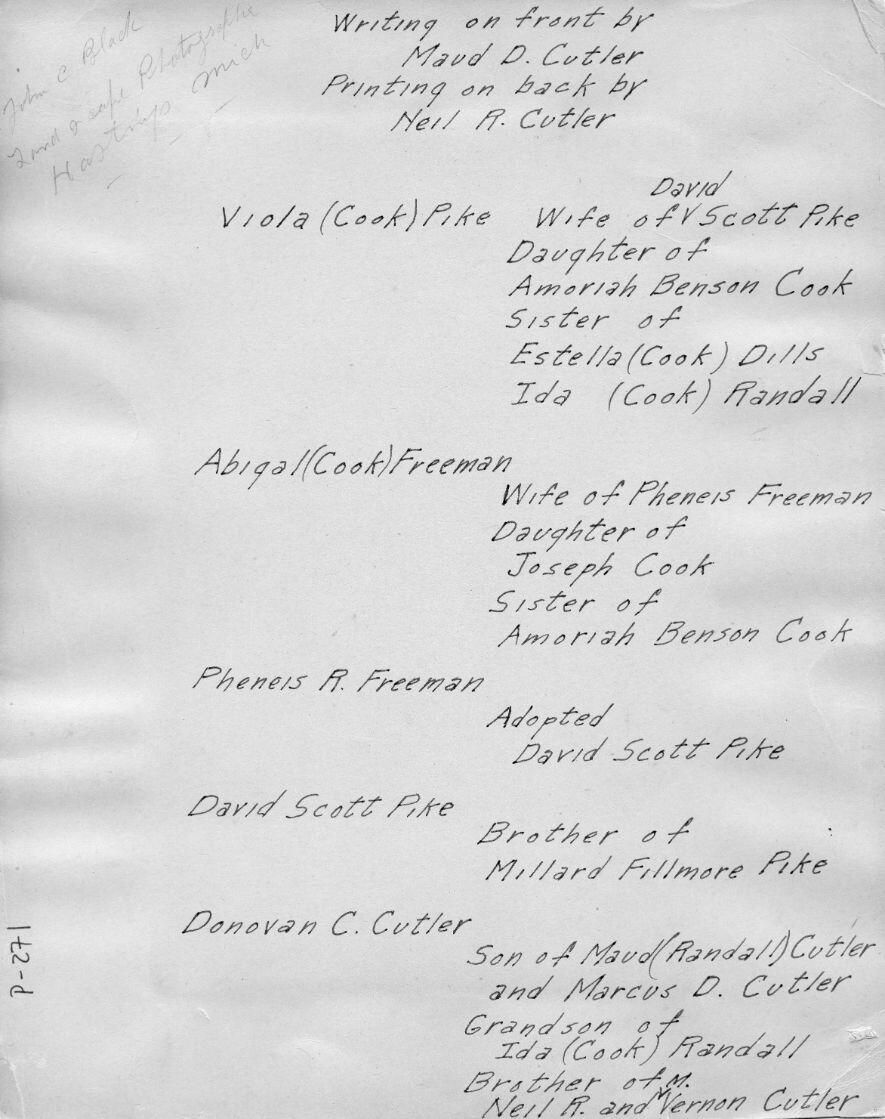 John C Black
Land scape Photographer
Hastings Mich
Writing on front by
Maud D. Cutler
Printing on back by
Neil R. Cutler
David
Viola (Cook) Pike Wife of Scott Pike
Daughter of
Amoriah Benson Cook
Sister of
Estella (Cook) Dills
Ida (Cook) Randall
Abigal (Cook) Freeman
Wife of Pheneis Freeman
Daughter of
Joseph Cook
Sister of
Amoriah Benson Cook
Pheneis R. Freeman
Adopted
David Scott Pike
David Scott Pike
Brother of
Millard Fillmore Pike
Donovan C. Cutler
Son of Maud (Randall) Cutler
and Marcus D. Cutler
Grandson of
Ida (Cook) Randall
Brother of M.
Neil R. and Vernon Cutler